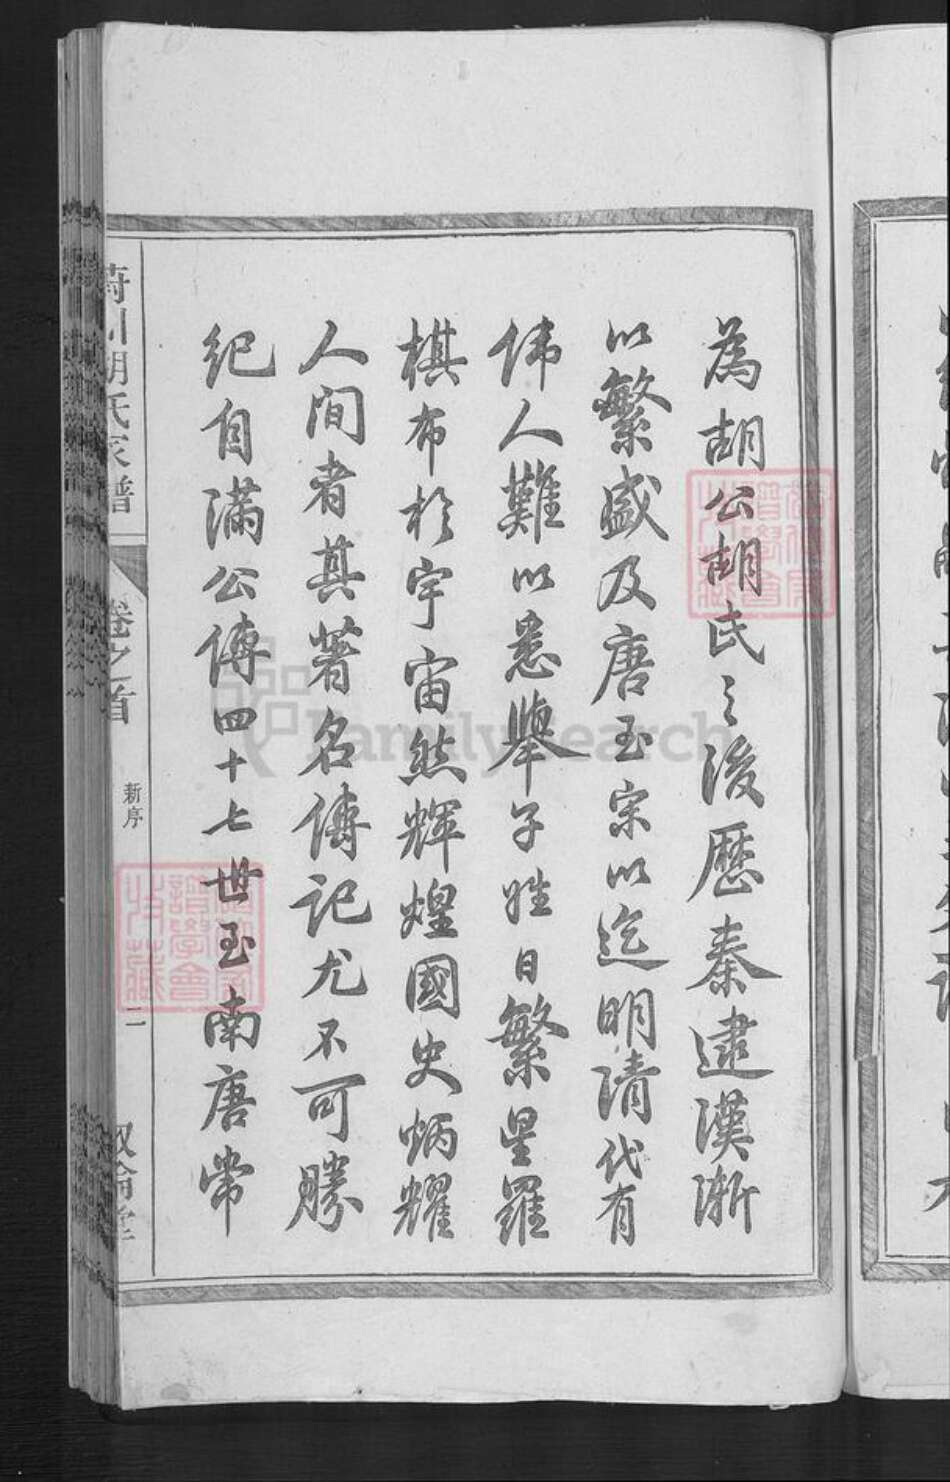 為胡公胡氏之後歷秦逮漢漸
以繁盛及唐玉宗以迄明清代有
偉人難以悉舉子姓日繁星羅
棋布於宇宙然輝煌國史炳耀
人間者其著名傳記尤不可勝
紀自滿公傳四十七世至南唐常
蔚川胡氏家譜
卷之首
新序
二
叙倫堂
FamilySearch